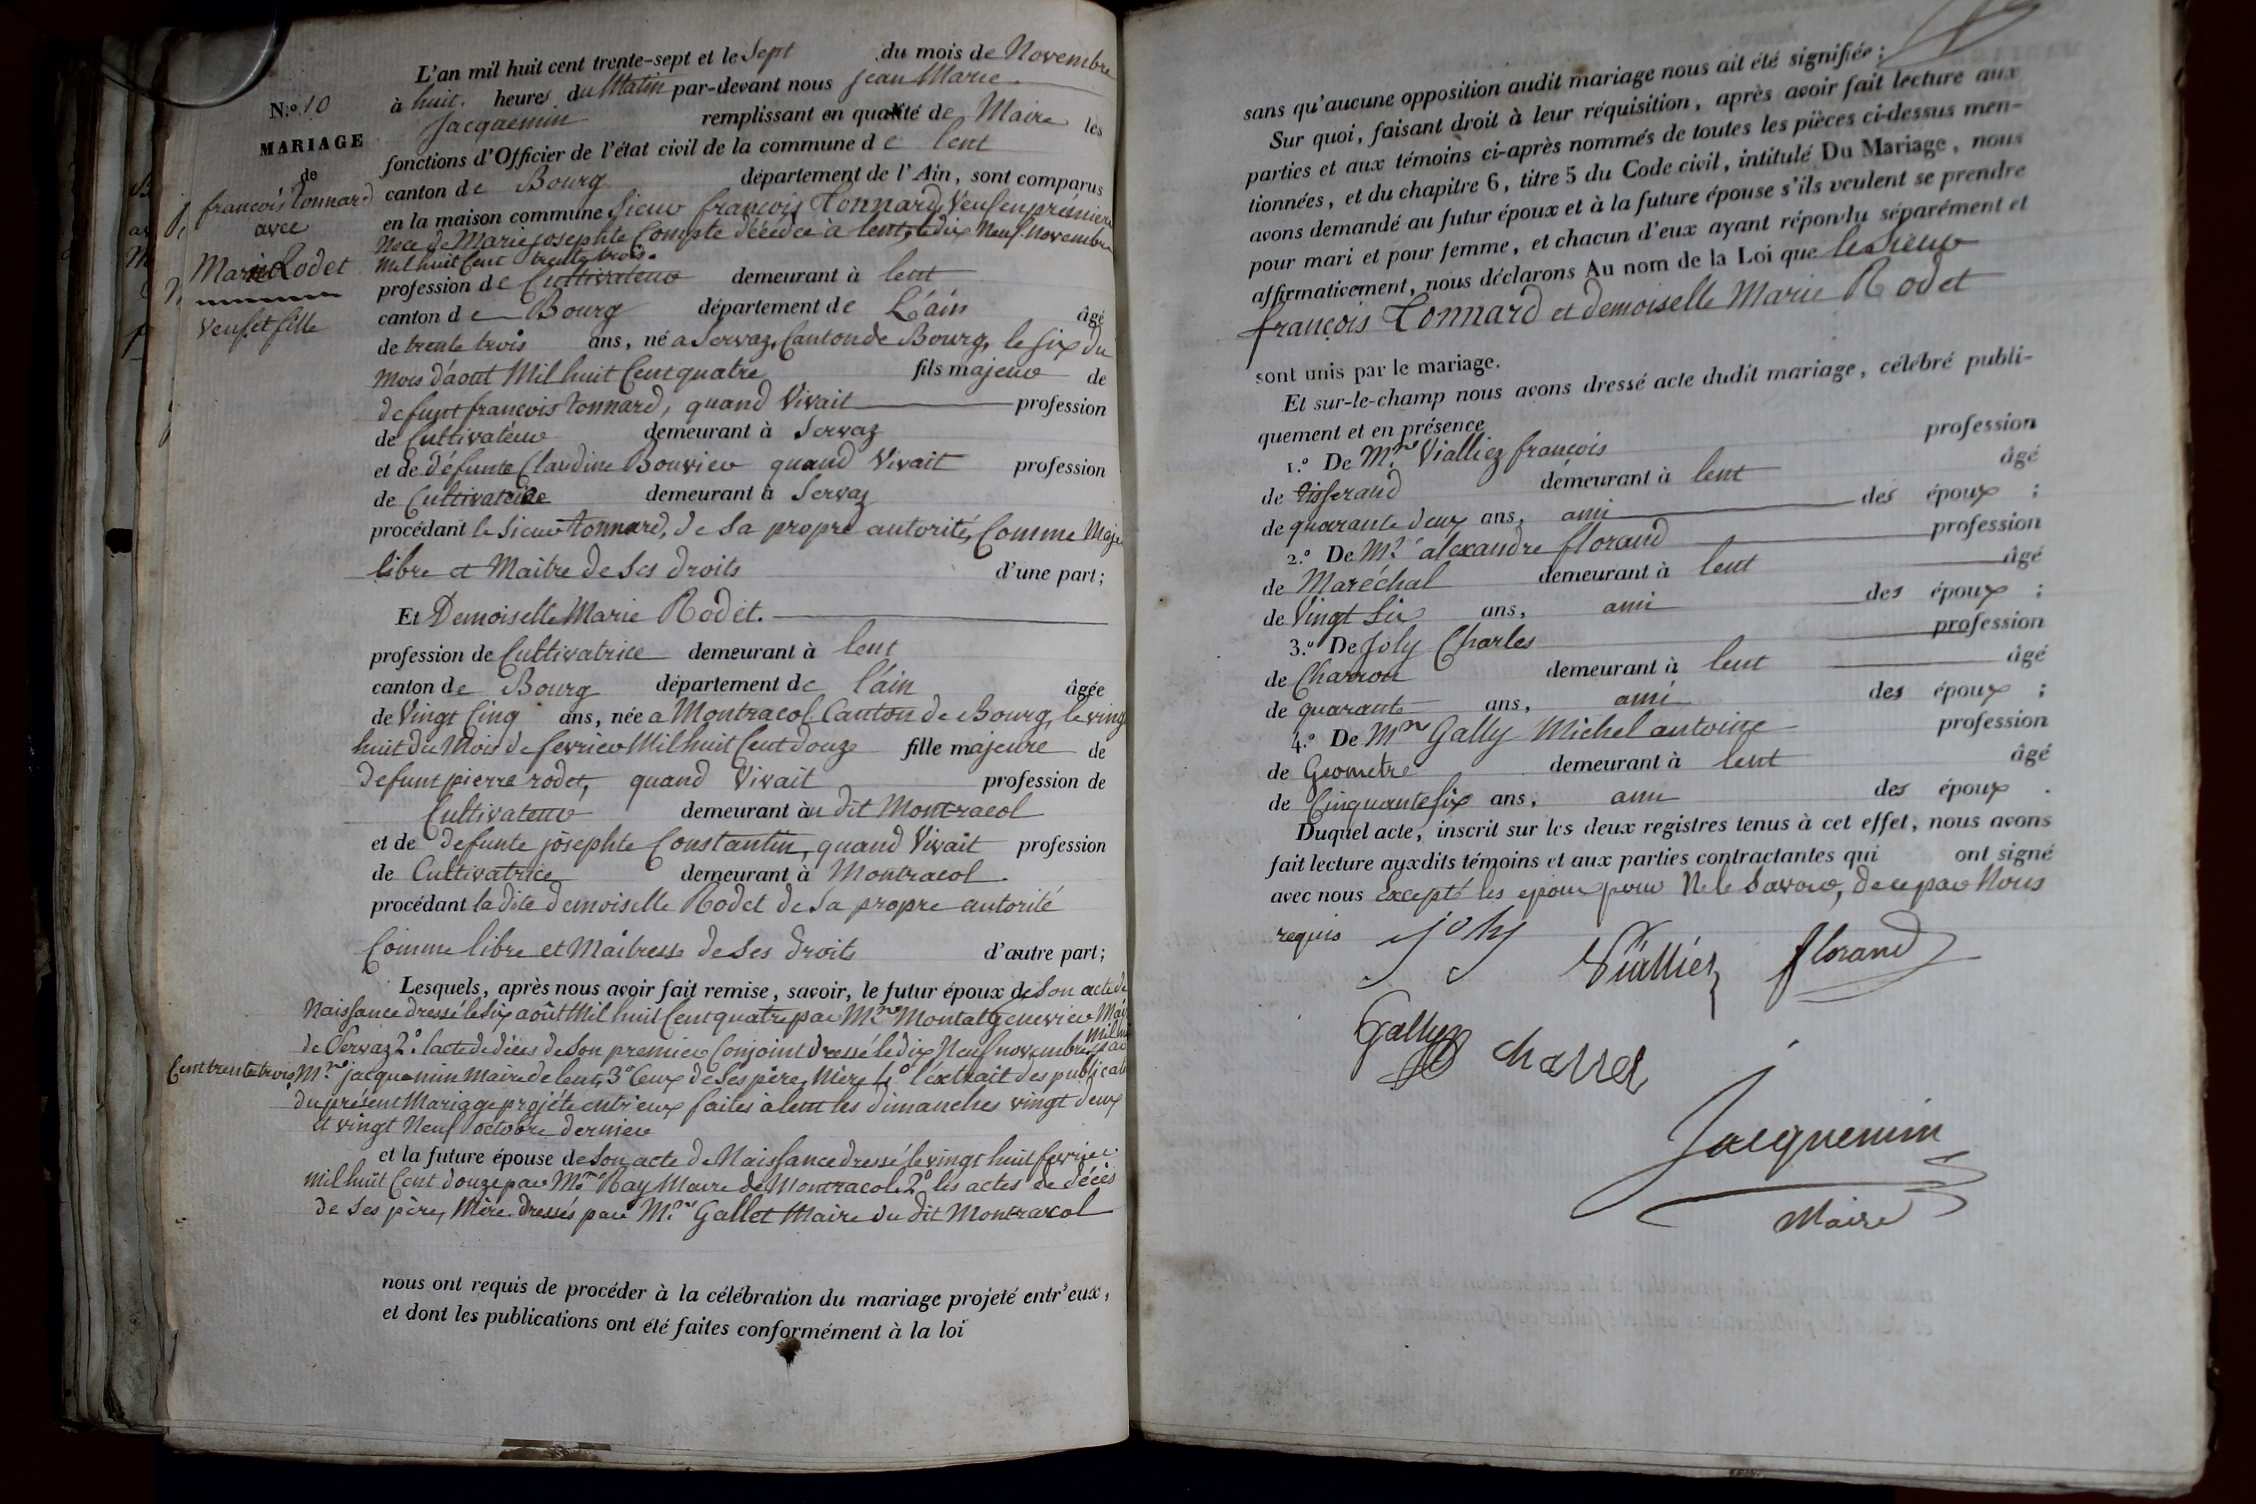 N.o 10
MARIAGE
de
françois Tonnard
avec
Marie Rodet
Veuf et fille
L'an mil huit cent trente-sept et le Sept du mois de Novembre
à huit heures du Matin par-devant nous jean Marie
Jacquemin remplissant en qualité de Maire les
fonctions d'Officier de l'état civil de la commune de lent
canton de Bourg département de l'Ain, sont comparus
en la maison commune Sieur françois Tonnard, Veuf en premiere
Noce de Marie josephte Compte décédée à lent, le dix Neuf Novembre
Mil huit Cent trente trois.
profession de Cultivateur demeurant à lent
canton de Bourg département de L'ain âgé
de trente trois ans, né a Servaz, Canton de Bourg, le six du
mois d'aout Mil huit Cent quatre fils majeur de
defunt françois tonnard, quand Vivait profession
de Cultivateur demeurant à Servaz
et de défunte Claudine Bouvier quand Vivait profession
de Cultivatrice demeurant à Servaz
procédant le Sieur tonnard, de Sa propre autorité, Comme Maje
libre et Maitre de Ses droits d'une part;
Et Demoiselle Marie Rodet.
profession de Cultivatrice demeurant à lent
canton de Bourg département de l'ain âgée
de Vingt Cinq ans, née a Montracol Canton de Bourg, le ving
huit du Mois de fevrier Mil huit Cent douze fille majeure de
defunt pierre rodet, quand Vivait profession de
Cultivateur demeurant au dit Montracol
et de defunte josephte Constantin, quand Vivait profession
de Cultivatrice demeurant à Montracol.
procédant la dite demoiselle Rodet de Sa propre autorité
Comme libre et Maitresse de Ses droits d'autre part;
Lesquels, après nous avoir fait remise, savoir, le futur époux de Son acte de
Naissance dressé le Six août Mil huit Cent quatre par Mr. Montalt
de Servaz 2o. l'acte de décès de Son premier Conjoint dressé le dix Neuf novembre Mil hui
Cent trente trois Mr. jacquemin Maire de lent, 3o Ceux de Ses père, Mère 4o l'extrait des publicati
du présent Mariage projété entr'eux faites a lent les dimanches vingt deux
et vingt Neuf octobre dernier
et la future épouse de Son acte de Naissance dressé le vingt huit fevrier
Mil huit Cent douze par Mr. Ray Maire de Montracol 2o les actes de décès
de Ses père, Mère dressés par Mr. Gallet Maire du dit Montracol
nous ont requis de procéder à la célébration du mariage projeté entr'eux,
et dont les publications ont été faites conformément à la loi
sans qu'aucune opposition audit mariage nous ait été signifiée;
Sur quoi, faisant droit à leur réquisition, après avoir fait lecture aux
parties et aux témoins ci-après nommés de toutes les pièces ci-dessus men-
tionnées, et du chapitre 6, titre 5 du Code civil, intitulé Du Mariage, nous
avons demandé au futur époux et à la future épouse s'ils veulent se prendre
pour mari et pour femme, et chacun d'eux ayant répondu séparément et
affirmativement, nous déclarons Au nom de la Loi que le Sieur
françois Tonnard et demoiselle Marie Rodet
sont unis par le mariage.
Et sur-le-champ nous avons dressé acte dudit mariage, célébré publi-
quement et en présence
1.o De Mr. Vialliez françois profession
de tisserand demeurant à lent âgé
de quarante deux ans, ami des époux;
2.o De Mr. alexandre florand profession
de Maréchal demeurant à lent âgé
de Vingt Six ans, ami des époux;
3.o De Joly Charles profession
de Charron demeurant à lent âgé
de quarante ans, ami des époux;
4.o De Mr Gally Michel antoine profession
de Geometre demeurant à lent âgé
de Cinquante six ans, ami des époux.
Duquel acte, inscrit sur les deux registres tenus à cet effet, nous avons
fait lecture auxdits témoins et aux parties contractantes qui ont signé
avec nous excepté les epoux pour Ne le Savoir, de ce par Nous
requis joly Vialliez florand
Gally charles
Jacquemin
Maire